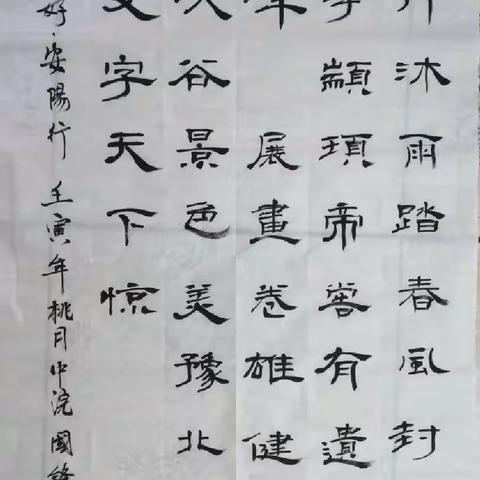 沐雨踏春风封
顓頊帝喾有遺
展畫卷雄健
谷景色美豫北
文字天下惊
好·安陽行 壬寅年桃月中浣 國